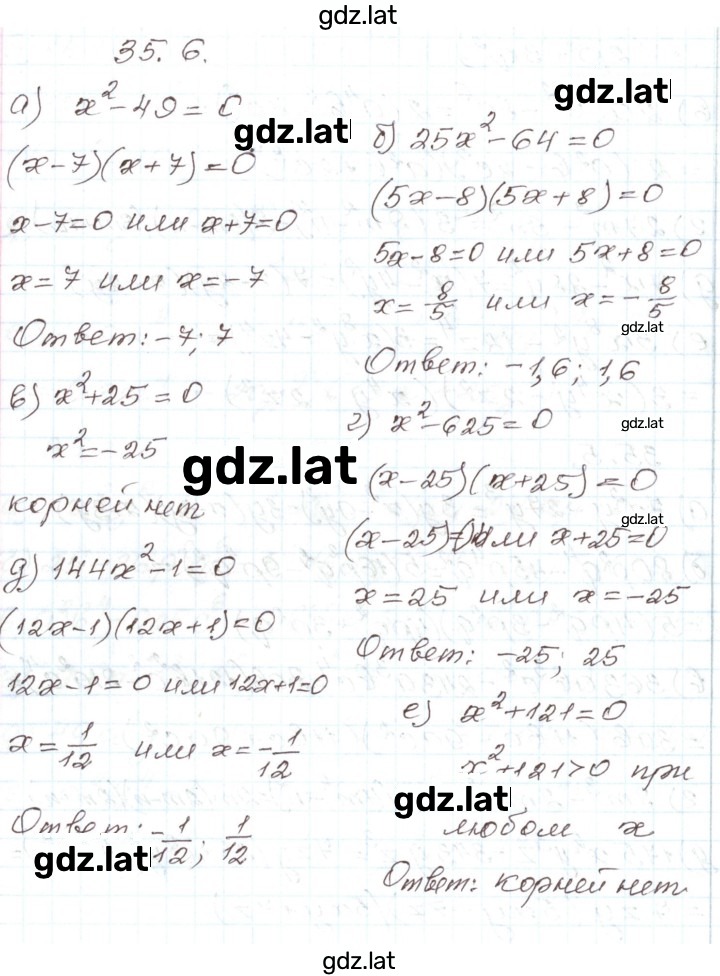 gdz.lat
35. 6.
а) x² - 49 = 0
gdz.lat
(x-7)(x+7) = 0
x-7=0 или x+7=0
x=7 или x=-7
Ответ: -7; 7
gdz.lat
б) 25x² - 64 = 0
(5x-8)(5x+8) = 0
5x-8=0 или 5x+8=0
x = 8/5 или x = -8/5
gdz.lat
Ответ: -1,6; 1,6
в) x² + 25 = 0
x² = -25
gdz.lat
корней нет
г) x² - 625 = 0
gdz.lat
(x-25)(x+25) = 0
gdz.lat
(x-25)=0 или x+25=0
x=25 или x=-25
Ответ: -25; 25
д) 144x² - 1 = 0
(12x-1)(12x+1)=0
12x-1=0 или 12x+1=0
x = 1/12 или x = -1/12
Ответ: -1/12; 1/12
gdz.lat
е) x² + 121 = 0
x² + 121 > 0 при
gdz.lat
любом x
Ответ: корней нет
gdz.lat